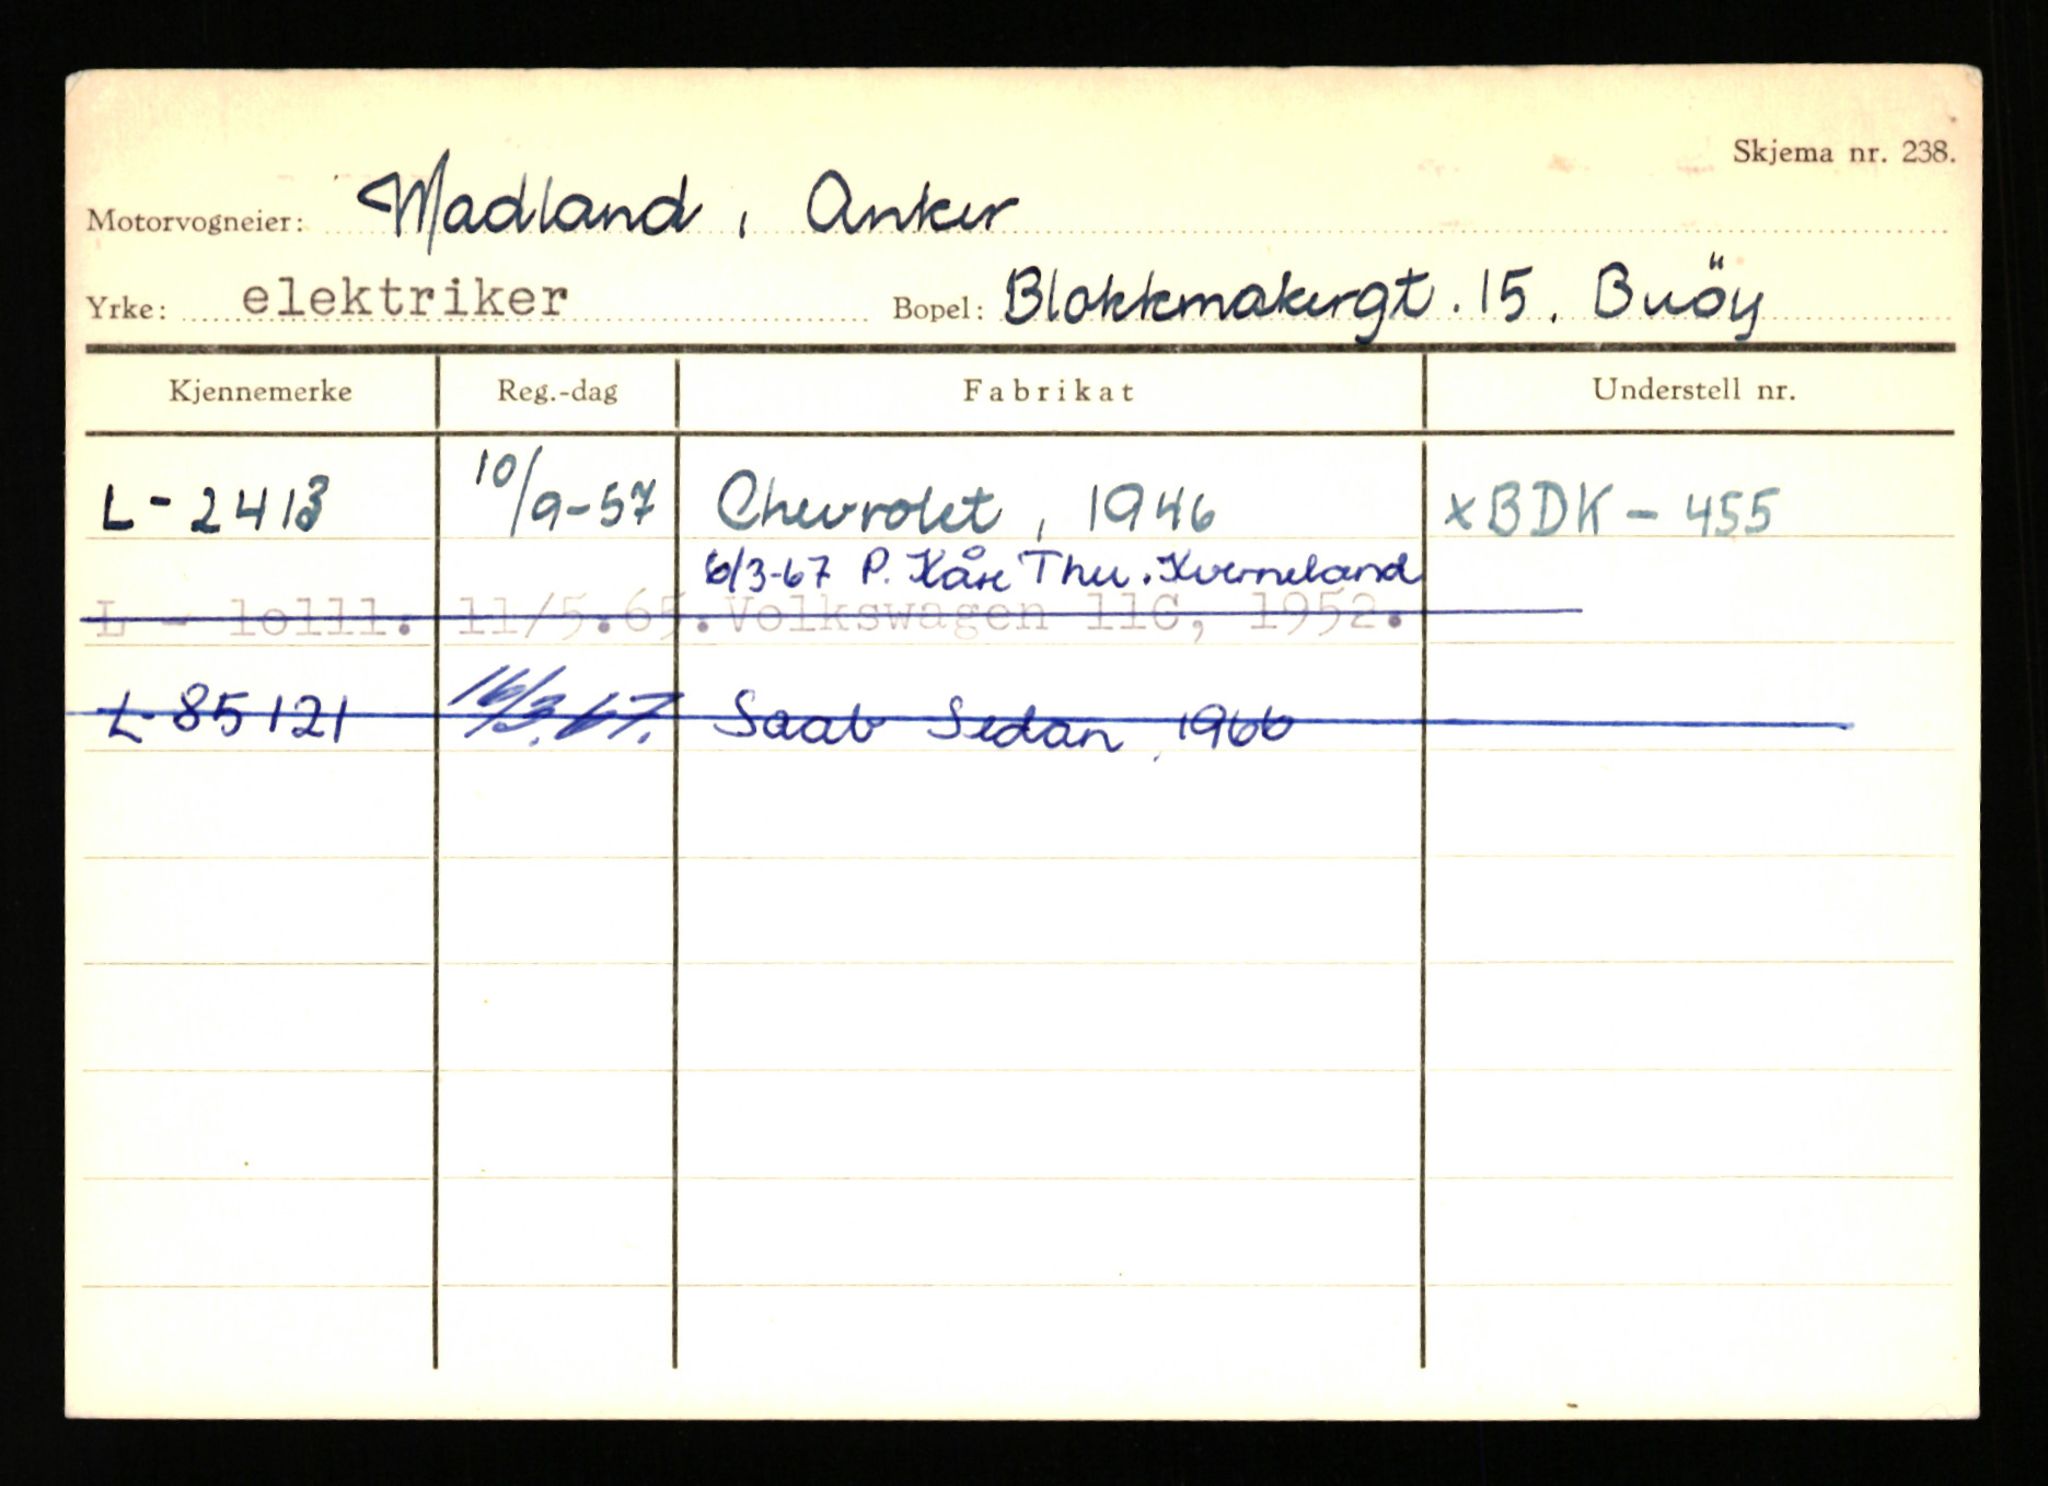 Skjema nr. 238.
Motorvogneier: Madland, Anker
Yrke: elektriker Bopel: Blokkmakergt. 15, Buöy
Kjennemerke Reg.-dag Fabrikat Understell nr.
L - 2413 10/9-57 Chevrolet, 1946 xBDK - 455
6/3-67 P. Kåre Thu. Kverneland
L - lolll. 11/5.65. Volkswagen 11C, 1952.
L-85121 16/3.67. Saab Sedan, 1966